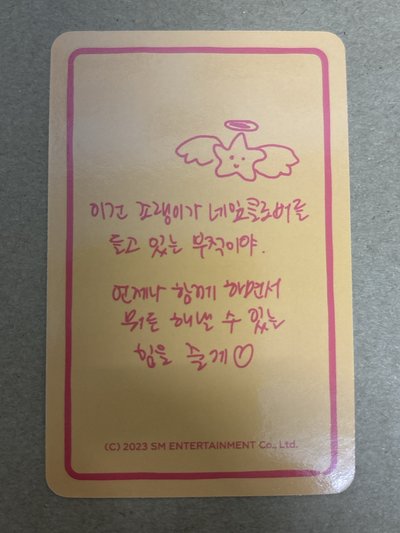 이건 포랭이가 네잎클로버를
들고 있는 부적이야.
언제나 함께 하면서
뭐든 해낼 수 있는
힘을 줄게♡
(C) 2023 SM ENTERTAINMENT Co., Ltd.